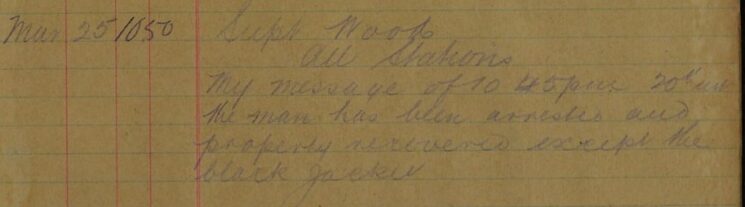 Mar 25 1050 Supt Wood
All Stations
My message of 10 45pm 20th inst
the man has been arrested and
property recovered except the
black jacket